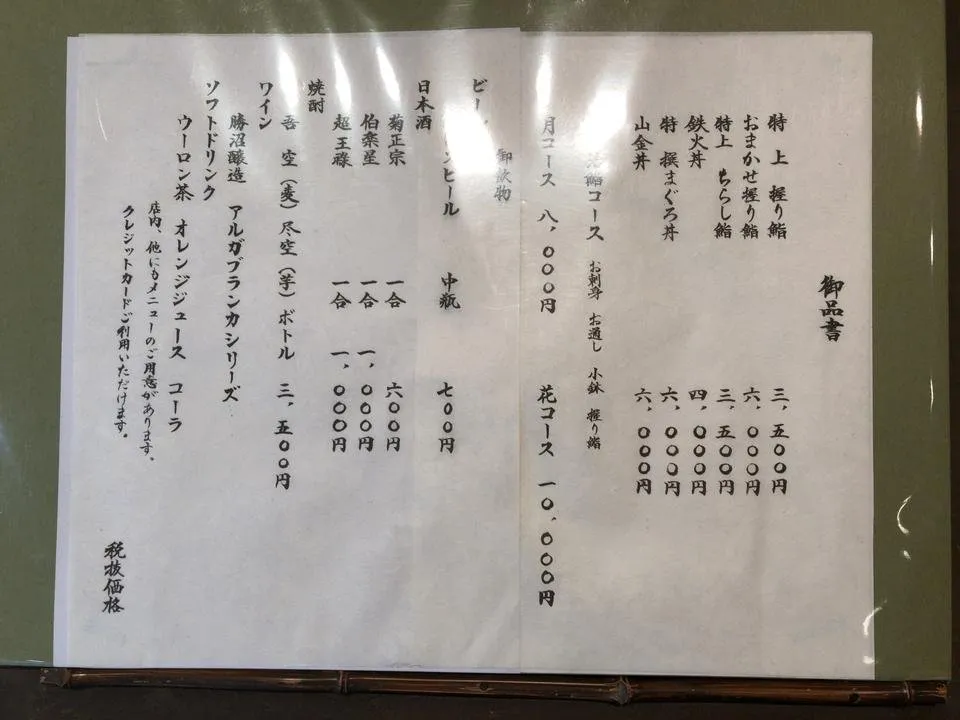 御品書
特上 握り鮨 三、五〇〇円
おまかせ握り鮨 六、〇〇〇円
特上 ちらし鮨 三、五〇〇円
鉄火丼 四、〇〇〇円
特 撰まぐろ丼 六、〇〇〇円
山金丼 六、〇〇〇円
鮨コース お刺身 お通し 小鉢 握り鮨
月コース 八、〇〇〇円 花コース 一〇、〇〇〇円
御飲物
ビール 中瓶 七〇〇円
日本酒
菊正宗 一合 六〇〇円
伯楽星 一合 一、〇〇〇円
超王祿 一合 一、〇〇〇円
焼酎
吾 空（麦）尽空（芋）ボトル 三、五〇〇円
ワイン
勝沼醸造 アルガブランカシリーズ
ソフトドリンク
ウーロン茶 オレンジジュース コーラ
店内、他にもメニューのご用意があります。
クレジットカードご利用いただけます。
税抜価格